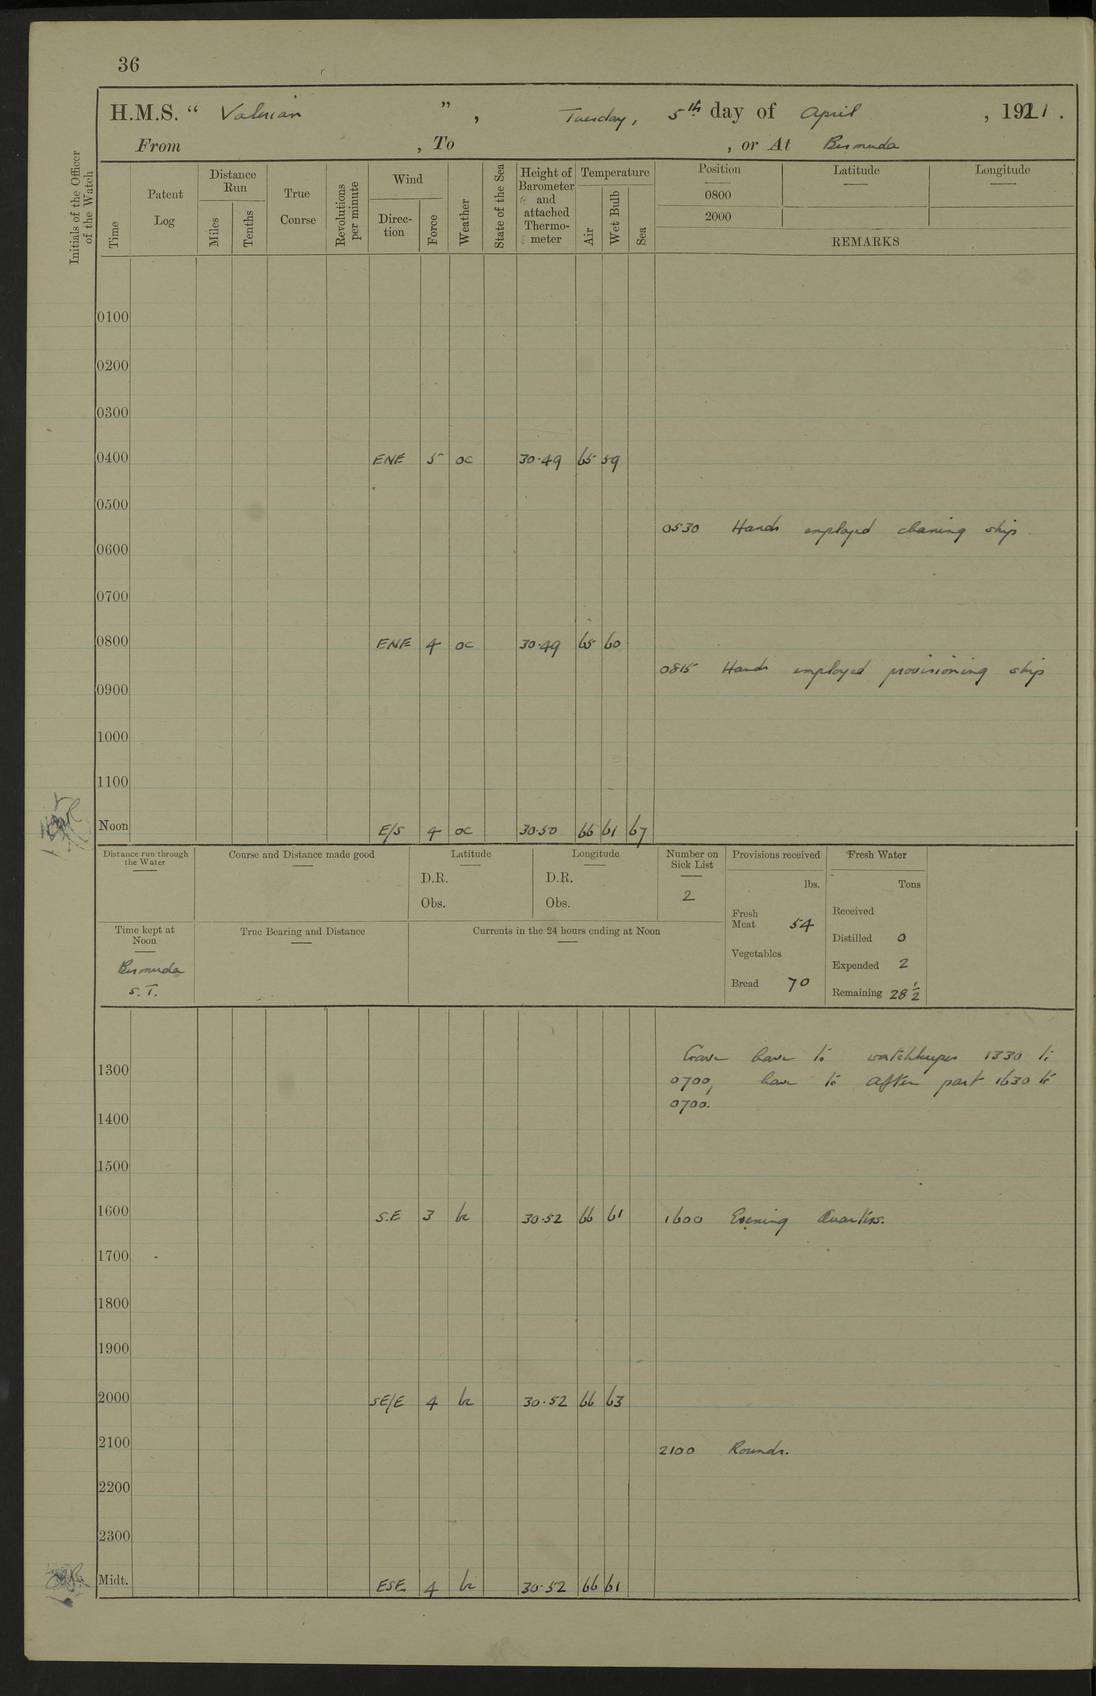 36
H.M.S. “ Valerian ”, Tuesday, 5th day of April, 1921.
From , To , or At Bermuda
Initials of the Officer of the Watch
Time
Patent Log
Distance Run
Miles
Tenths
True Course
Revolutions per minute
Wind
Direc-tion
Force
Weather
State of the Sea
Height of Barometer and attached Thermo-meter
Temperature
Air
Wet Bulb
Sea
Position Latitude Longitude
0800
2000
REMARKS
0100
0200
0300
0400 ENE 5 oc 30.49 65 59
0500
0530 Hands employed cleaning ship
0600
0700
0800 ENE 4 oc 30.49 65 60
0815 Hands employed provisioning ship
0900
1000
1100
Noon E/S 4 oc 30.50 66 61 67
Distance run through the Water
Course and Distance made good
Latitude
D.R.
Obs.
Longitude
D.R.
Obs.
Number on Sick List
2
Provisions received
lbs.
Fresh Meat 54
Vegetables
Bread 70
Fresh Water
Tons
Received
Distilled 0
Expended 2
Remaining 28½
Time kept at Noon
Bermuda
S.T.
True Bearing and Distance
Currents in the 24 hours ending at Noon
Gave leave to watchkeepers 1330 to
1300
0700, leave to after part 1630 to
0700.
1400
1500
1600 S.E 3 bc 30.52 66 61 1600 Evening Quarters.
1700
1800
1900
2000 SE/E 4 bc 30.52 66 63
2100 2100 Rounds.
2200
2300
Midt. ESE 4 bc 30.52 66 61